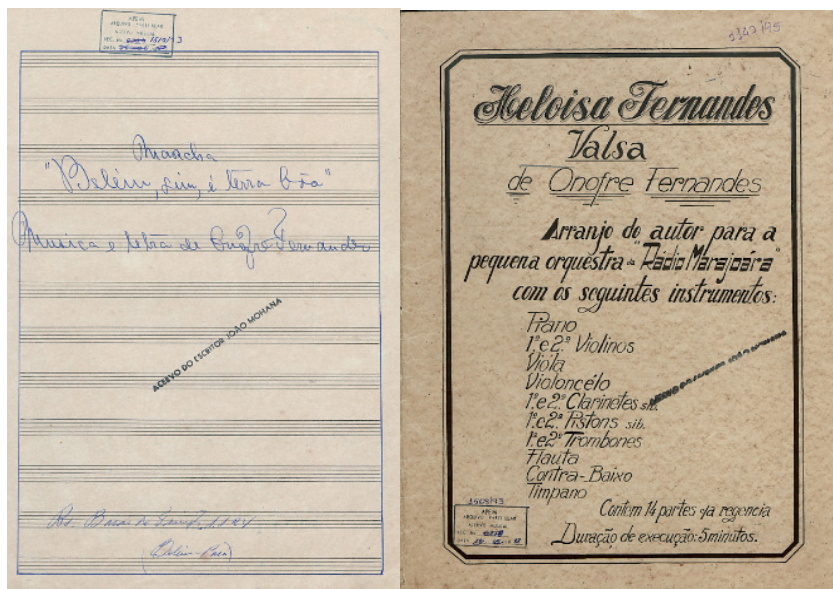 APEM
ARQUIVO PARTICULAR
1508/93
Marcha
"Belém, sim, é terra bôa"
Musica e letra de Onofre Fernandes
ACERVO DO ESCRITOR JOÃO MOHANA
(Belém-Pará)
1147/95
Heloisa Fernandes
Valsa
de Onofre Fernandes
Arranjo do autor para a
pequena orquéstra da "Rádio Marajoára"
com os seguintes instrumentos:
Piano
1.º e 2.º Violinos
Viola
Violoncélo
1.º e 2.º Clarinetes sib.
1.º e 2.º Pistons sib.
1.º e 2.º Trombones
Flauta
Contra-Baixo
Timpano
1508/93
APEM
ARQUIVO PARTICULAR
Contem 14 partes e/a regencia
Duração de execução: 5 minutos.